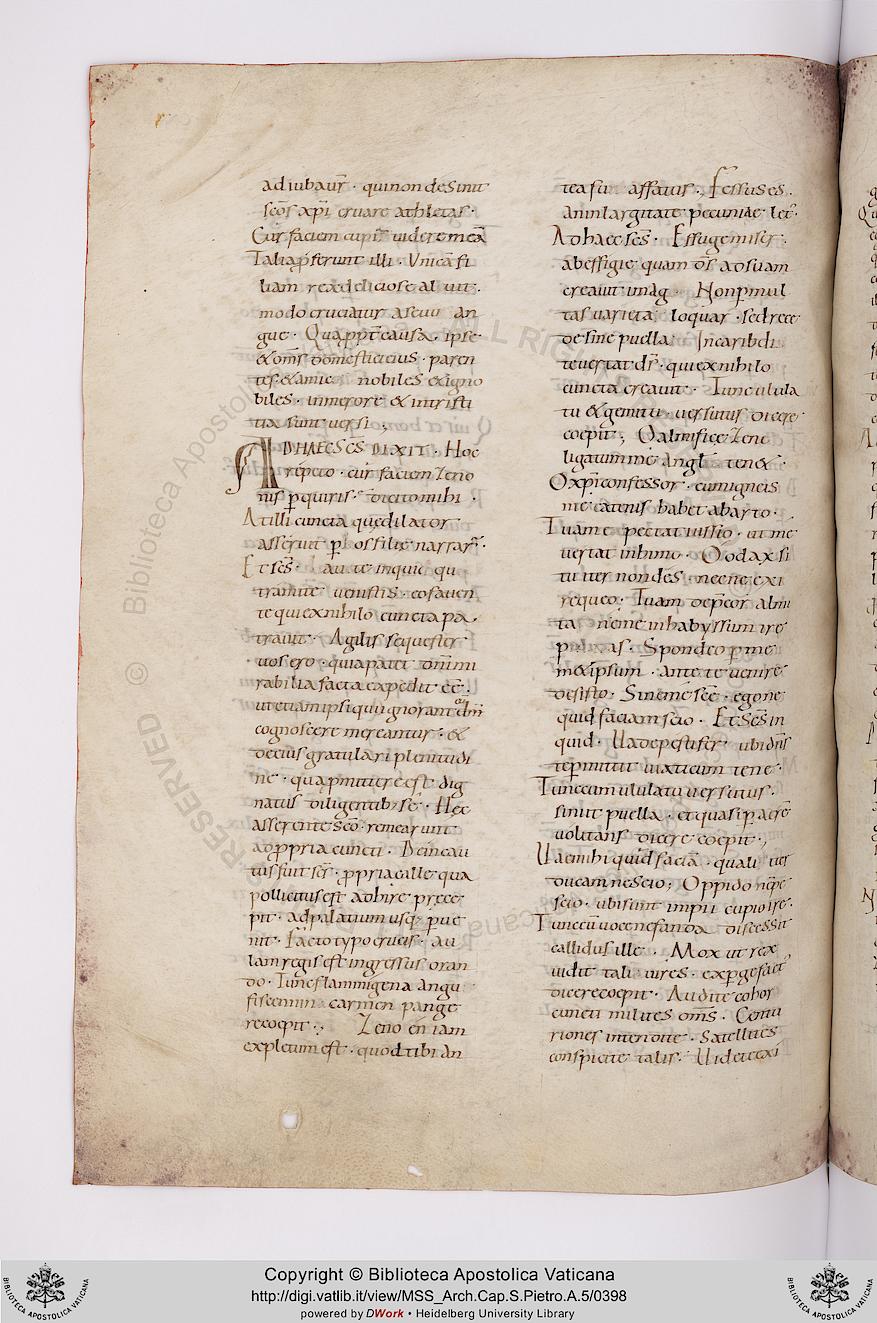 adiubatur · qui non desinit
scōs xp̄i cruare athletas ·
Cur faciem cupis uidere meā
Talia p̄ferunt illi · Unicā fi
liam rex deliciose aluit ·
modo cruciatur a seuo an
gue · Qua ppt̄ causa · ipse
& om̄s domestici eius · paren
tes & amici nobiles & igno
biles · in merore & in tristi
tia sunt uersi ;
AD HAEC SC̄S DIXIT · Hoc
repeto · cur faciem Zeno
nis pquiris · dicito mihi ·
At illi cuncta que dilator
asseruit
Et sc̄s
tramite uenistis · eo fauen
te qui ex nihilo cuncta pa
trauit · Agilis sequester
uos ero · quia patet
rabilia facta expedit eē ·
ut etiam ipsi qui ignorant dm̄
cognoscere mereantur · &
de eius gratulari plenitudi
ne · qua p̄mittere est dig
natus diligentib; se · Hec
asserente scō · remearunt
ad ppria cuncti · Dein cau
tus sc̄s · ppria calle qua
pollicitus est adhire prece
pit · ad palatium usq; pue
nit · Facto typo crucis · au
lam regis est ingressus oran
do · Tunc flammigena angu
carmen pange
re coepit ; Zeno en iam
expletum est · quod tibi an
tea sum affatus ; Fessus es
anin largitate pecuniae let
Ad haec sc̄s · Effuge miser
ab effigie quam d̄s ad suam
creauit imag · Non p mul
tas uarieta loquar · sed rece
de sine puella In caribdi
te uertat d̄s · qui ex nihilo
cuncta creauit · Tunc ulula
tu & gemitu uersutus dicere
coepit ; O almifice Zeno
ligatum me angl tenet ·
O xp̄i confessor · cum igneis
me catenis habet abarto ·
Tuam expectat iussio · ut me
uertat in himo · O odax si
tu iter non des · necne exi
re queo · Tuam depcor almi
ta ne me in habyssum ire
Spondeo p me
met ipsum · ante te uenire
desisto · Sine me scē · ego ne
quid faciam scio · Et Sc̄s in
quid · Uade pestifer · ubi dn̄s
te pmittit uiaticum tene ·
Tunc cum ululatu uersutus
sinit puella · et quasi p aerē
uolitans dicere coepit ;
Uae mihi quid faciā · quali iter
ducam nescio ; Oppido
scio · ubi sunt impii cupio ire ·
Tunc cū uoce nefanda discessit
callidus ille · Mox ut rex
uidit tali uires · expgefact
dicere coepit · Audite cohor
cuncti milites om̄s · Centu
riones intendite · Satellites
conspicite talis · Uidete exi
Copyright © Biblioteca Apostolica Vaticana
http://digi.vatlib.it/view/MSS_Arch.Cap.S.Pietro.A.5/0398
powered by DWork • Heidelberg University Library